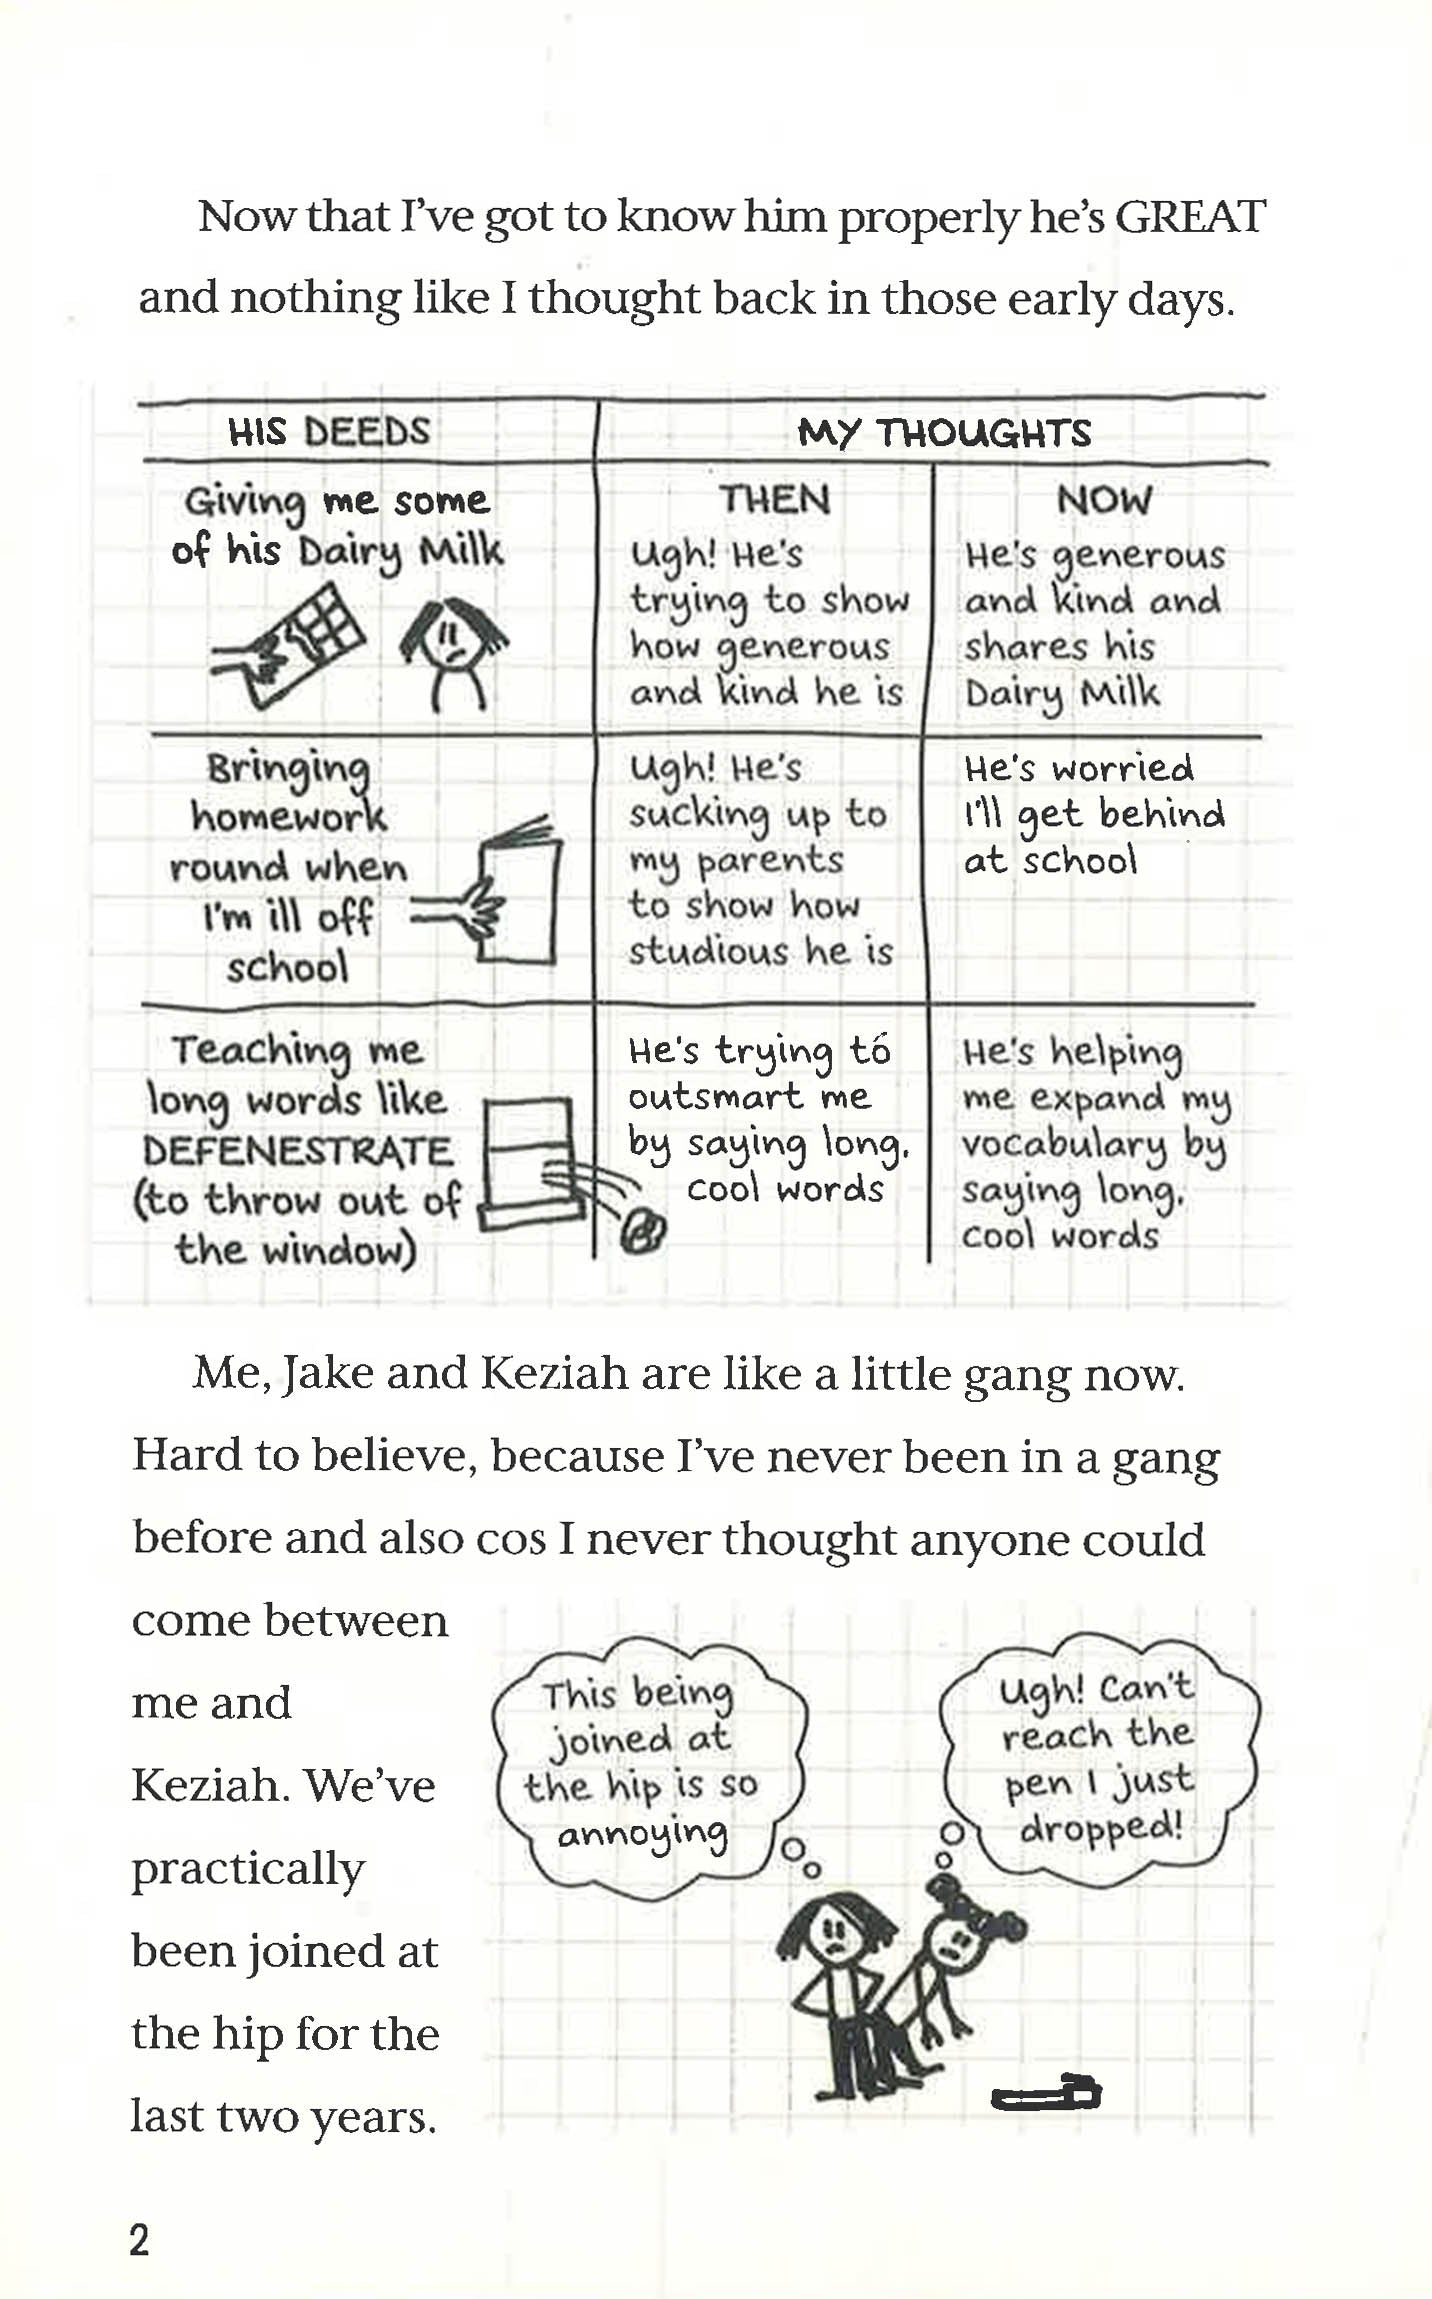 Now that I've got to know him properly he's GREAT
and nothing like I thought back in those early days.
HIS DEEDS
MY THOUGHTS
Giving me some
of his Dairy Milk
THEN
Ugh! He's
trying to show
how generous
and kind he is
NOW
He's generous
and kind and
shares his
Dairy Milk
Bringing
homework
round when
I'm ill off
school
Ugh! He's
sucking up to
my parents
to show how
studious he is
He's worried
I'll get behind
at school
Teaching me
long words like
DEFENESTRATE
(to throw out of
the window)
He's trying to
outsmart me
by saying long,
cool words
He's helping
me expand my
vocabulary by
saying long,
cool words
Me, Jake and Keziah are like a little gang now.
Hard to believe, because I've never been in a gang
before and also cos I never thought anyone could
come between
me and
Keziah. We've
practically
been joined at
the hip for the
last two years.
This being
joined at
the hip is so
annoying
Ugh! Can't
reach the
pen I just
dropped!
2